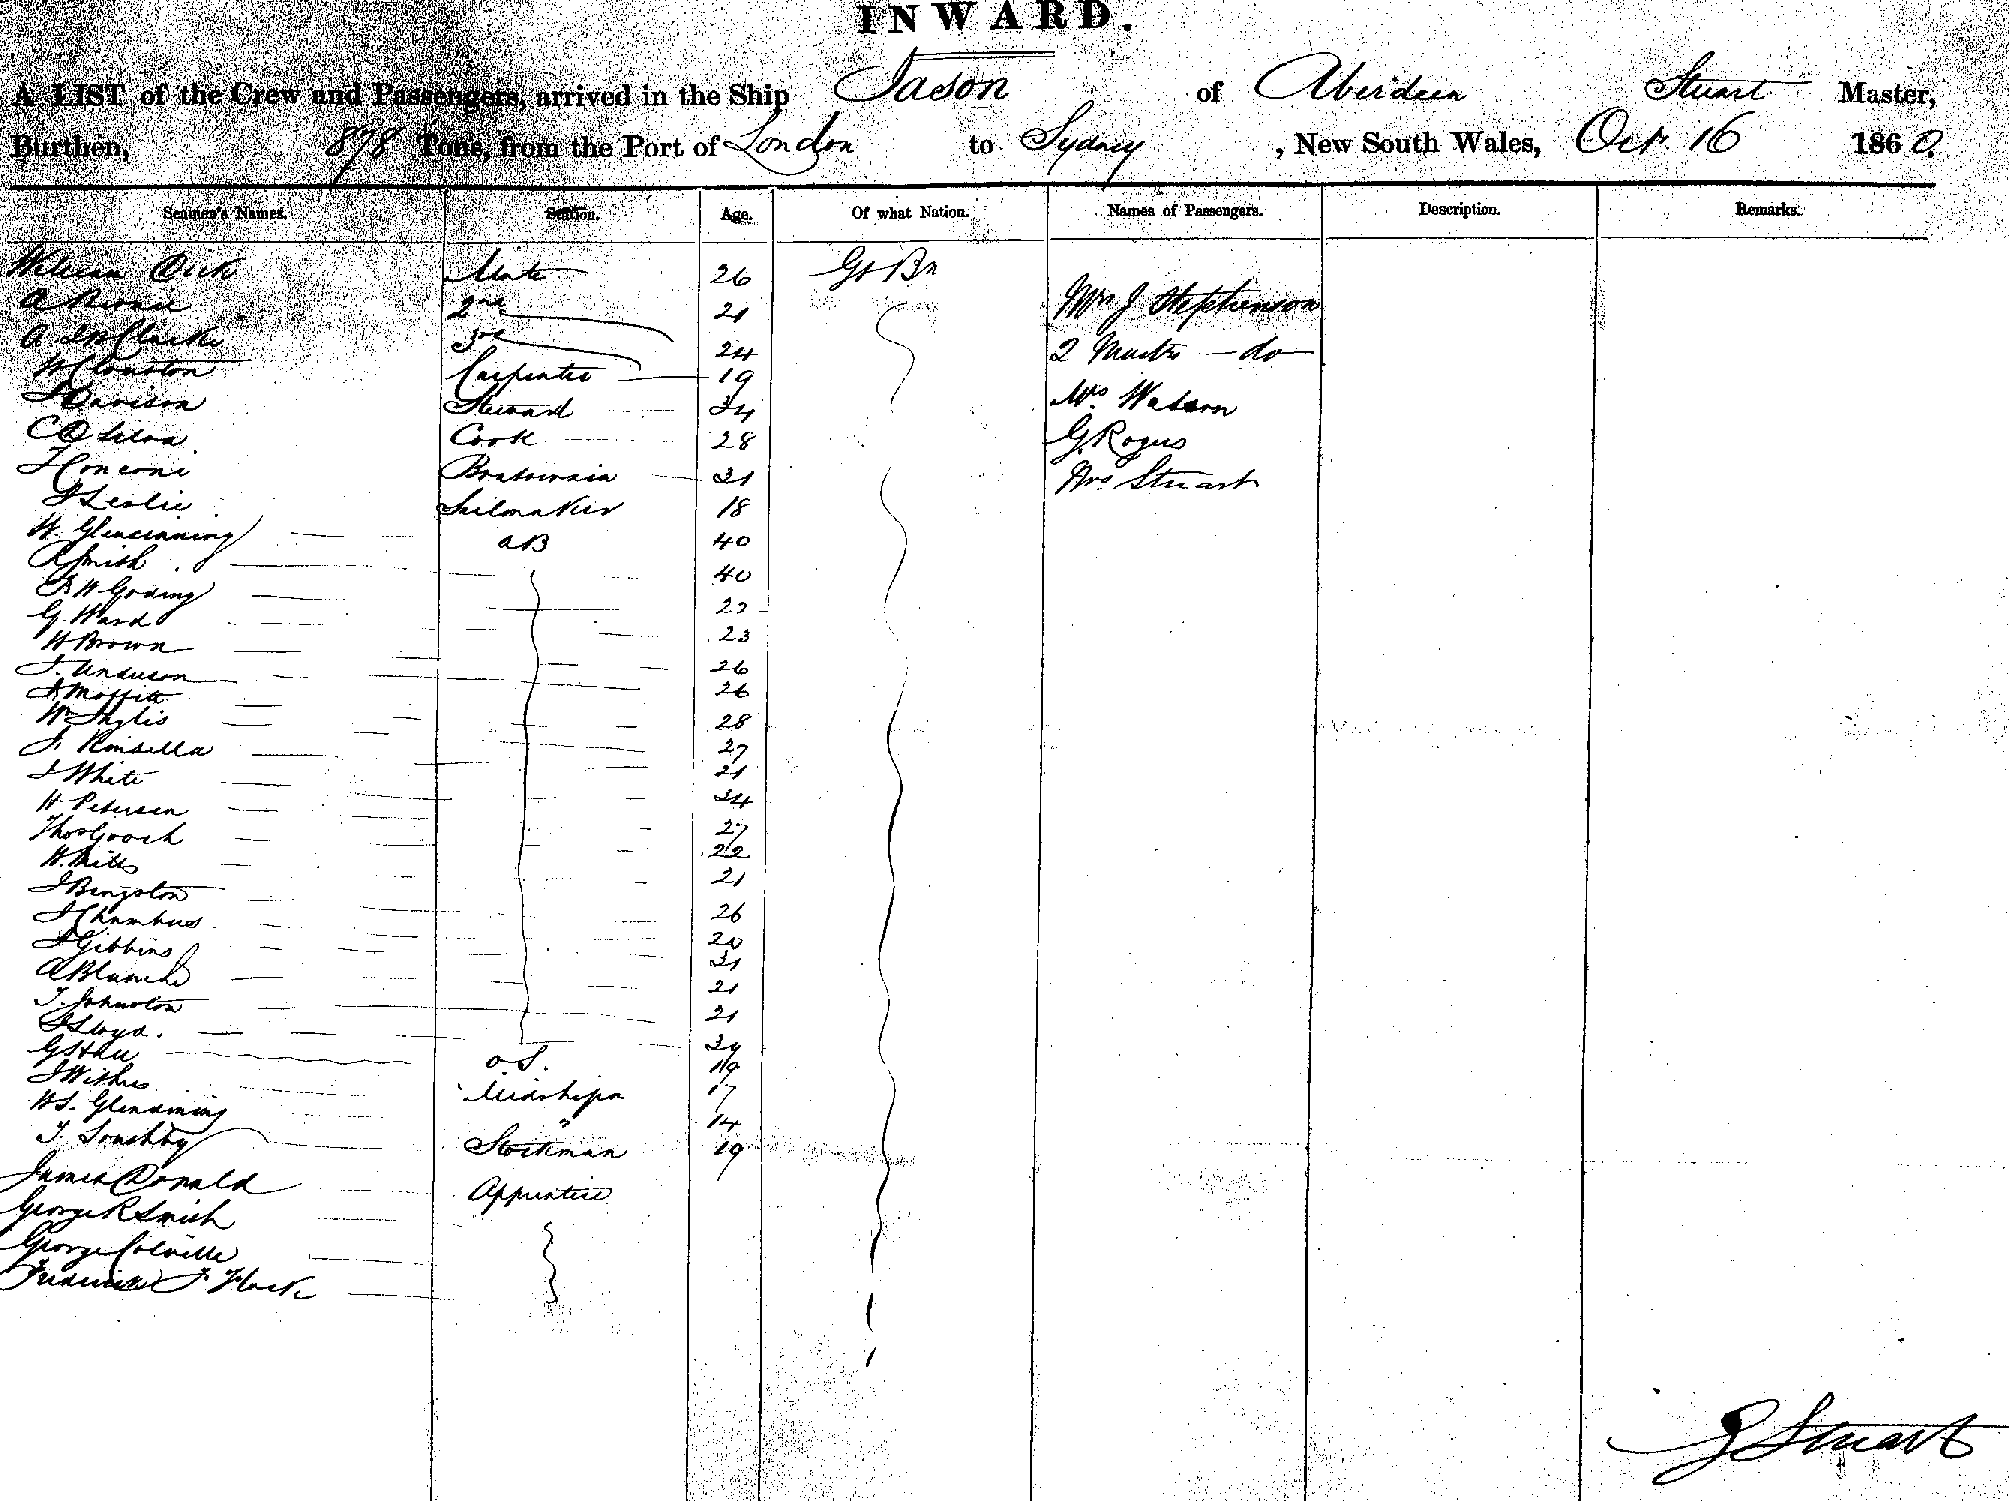 INWARD.
A LIST of the Crew and Passengers, arrived in the Ship Jason of Aberdeen Stuart Master,
Burthen, 878 Tons, from the Port of London to Sydney, New South Wales, Oct. 16 1860.
Seamen's Names. Station. Age. Of what Nation. Names of Passengers. Description. Remarks.
William Dick Mate 26 Gt Bn
A 2nd 21 Mrs J Stephenson
A Clarke 3rd 24 2 Mastr do
W Clouston Carpenter 19
J Davison Steward 34 Mrs Watson
C Cook 28 G. Rogers
J Conconi Boatswain 31 Mrs Stuart
J Leslie Sailmaker 18
W. Glencinning AB 40
R Smith 40
F W Goding
G Ward 23
W Brown 26
J. Anderson 26
J. Moffitt
Wm Inglis 28
J. Kinsella 27
J White 21
W Petersen 34
Thos Gooch 27
W. Mills 22
J Bengston 21
J Chambers 26
J Gibbins 20
A Blanche 31
T. Johnston 21
J Lloyd. 21
G O.S. 19
J Withers Midshipn 17
W S. Glendining " 14
T. Stockman 19
James Donald Apprentice
George R Smith
George Colville
Frederick F Flack
J Stuart